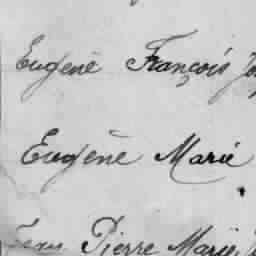 Eugène François
Eugène Marie
Jean Pierre Marie